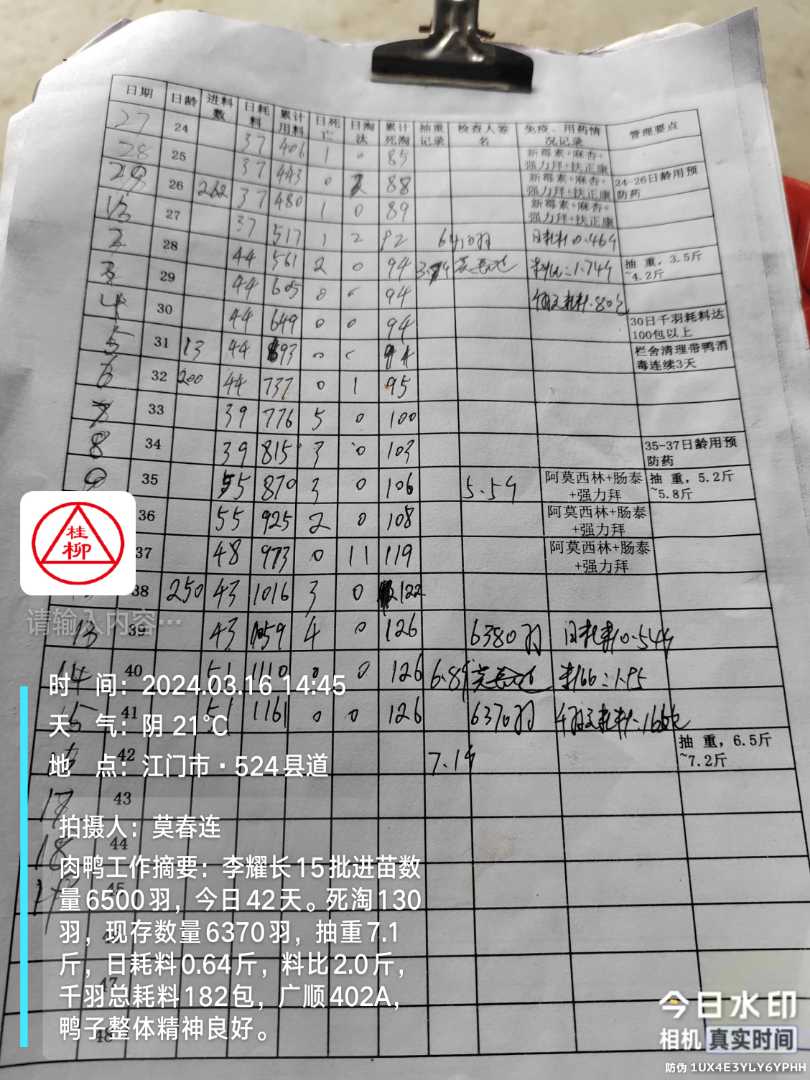 日期 日龄 进料数 日耗料 累计用料 日死亡 日淘汰 累计死淘 抽重记录 检查人签名 免疫、用药情况记录 管理要点
27 24 37 406 1 0 85 新霉素+麻杏+强力拜+扶正康
28 25 37 443 0 88 新霉素+麻杏+强力拜+扶正康 24-26日龄用预防药
29 26 37 480 1 0 89 新霉素+麻杏+强力拜+扶正康
27 37 517 1 2 92 日耗料0.46斤
2 28 44 561 2 0 94 抽重，3.5斤~4.2斤
3 29 44 605 94
4 30 44 649 0 0 94 30日千羽耗料达100包以上
5 31 13 44 693 94 栏舍清理带鸭消毒连续3天
6 32 200 44 737 0 1 95
7 33 39 776 5 0 100
8 34 39 815 3 0 103 35-37日龄用预防药
9 35 55 870 3 0 106 5.5斤 阿莫西林+肠泰+强力拜 抽重，5.2斤~5.8斤
36 55 925 2 0 108 阿莫西林+肠泰+强力拜
37 48 973 0 11 119 阿莫西林+肠泰+强力拜
38 250 43 1016 3 0 122
13 39 43 1059 4 0 126 6380羽 日耗料0.54斤
14 40 51 1110 0 0 126 6.8斤
15 41 51 1161 0 0 126 6370羽
42 7.1斤 抽重，6.5斤~7.2斤
17 43
18 44
45
47
48
桂柳
请输入内容…
时 间：2024.03.16 14:45
天 气：阴 21℃
地 点：江门市·524县道
拍摄人：莫春连
肉鸭工作摘要：李耀长15批进苗数
量6500羽，今日42天。死淘130
羽，现存数量6370羽，抽重7.1
斤，日耗料0.64斤，料比2.0斤，
千羽总耗料182包，广顺402A，
鸭子整体精神良好。
今日水印
相机 真实时间
防伪 1UX4E3YLY6YPHH